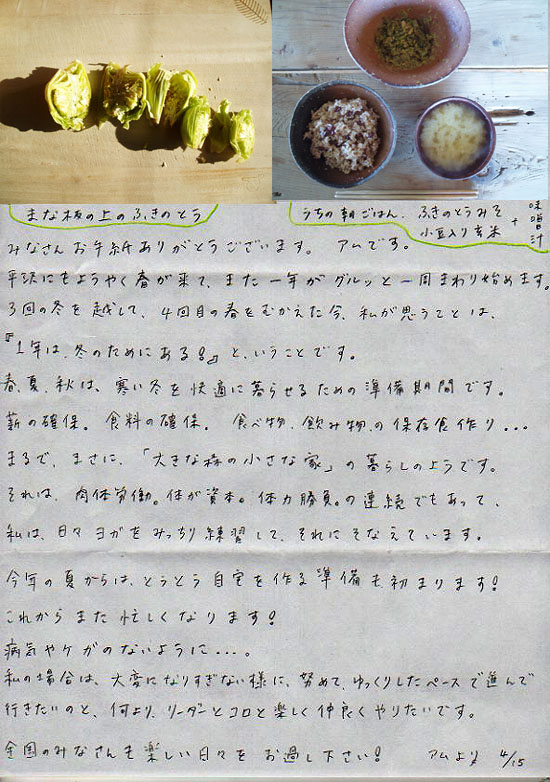 まな板の上のふきのとう
うちの朝ごはん. ふきのとうみそ
小豆入り玄米
+
味噌汁
みなさんお手紙ありがとうございます。アムです。
平沢にもようやく春が来て、また一年がグルッと一周まわり始めます。
3回の冬を越して、4回目の春をむかえた今、私が思うことは、
『1年は、冬のためにある!』と、いうことです。
春、夏、秋は、寒い冬を快適に暮らせるための準備期間です。
薪の確保。食料の確保。食べ物、飲み物、の保存食作り...
まるで、まさに、「大きな森の小さな家」の暮らしのようです。
それは、肉体労働。体が資本。体力勝負。の連続でもあって、
私は、日々ヨガをみっちり練習して、それにそなえています。
今年の夏からは、とうとう自宅を作る準備も初まります!
これからまた忙しくなります!
病気やケガのないように...。
私の場合は、大変になりすぎない様に、努めて、ゆっくりしたペースで進んで
行きたいのと、何より、リーダーとコロと楽しく仲良くやりたいです。
全国のみなさんも楽しい日々をお過し下さい! アムより 4/15